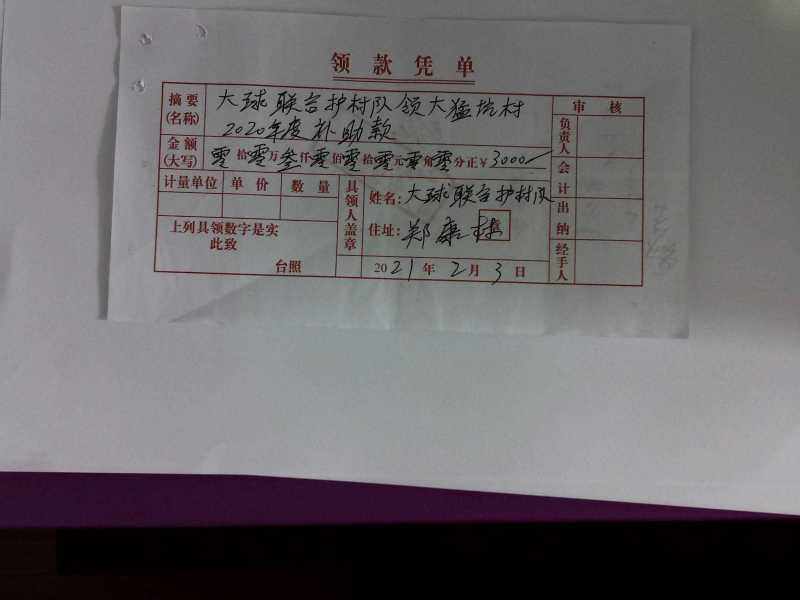 领款凭单
摘要(名称) 大球联合护村队领大猛坑村
2020年度补助款
审核
金额(大写) 零拾零万叁仟零佰零拾零元零角零分正¥3000—
负责人
会计
出纳
经手人
计量单位 单价 数量
具领人盖章
姓名:大球联合护村队
住址:郑康
上列具领数字是实
此致
台照
2021年2月3日